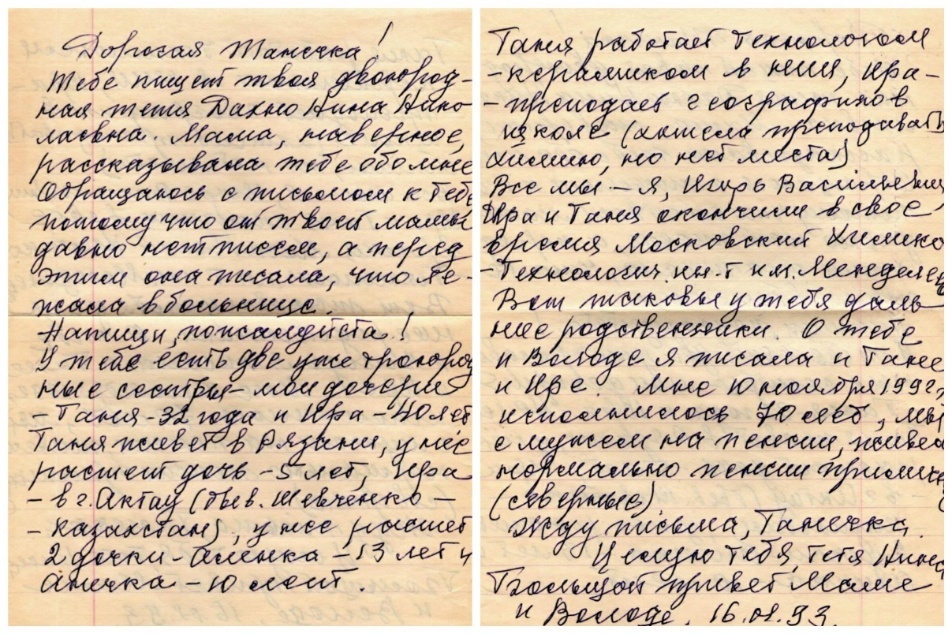 Дорогая Танечка!
Тебе пишет твоя двоюрод-
ная тетя Дахно Нина Нико
лаевна. Мама, наверное,
рассказывала тебе обо мне
Обращаюсь с письмом к тебе
потому что от твоей мамы
давно нет писем, а перед
этим она писала, что ле-
жала в больнице.
Напиши, пожалуйста!
У тебя есть две уже троюрод
ные сестры – мои дочери
– Таня – 32 года и Ира – 40 лет
Таня живет в Рязани, у нее
растет дочь – 5 лет, Ира
– в г. Актау (быв. Шевченко –
– Казахстан), у нее растет
2 дочки – Аленка – 13 лет и
Анечка – 10 лет.
Таня работает технологом
– керамиком в НИИ, Ира –
– преподает географию в
школе (хотела преподавать
химию, но нет места)
Все мы – я, Игорь Васильевич
Ира и Таня окончили в свое
время Московский Химико
– Технологич. ин-т им. Менделеев
Вот таковы у тебя даль
ние родственники. О тебе
и Володе я писала и Тане
и Ире. Мне 10 ноября 1992г.
исполнилось 70 лет, мы
с мужем на пенсии, живем
нормально пенсии прилич
(северные)
Жду письма, Танечка.
Целую тебя, тетя Нина
Большой привет Маме
и Володе. 16.01.93.